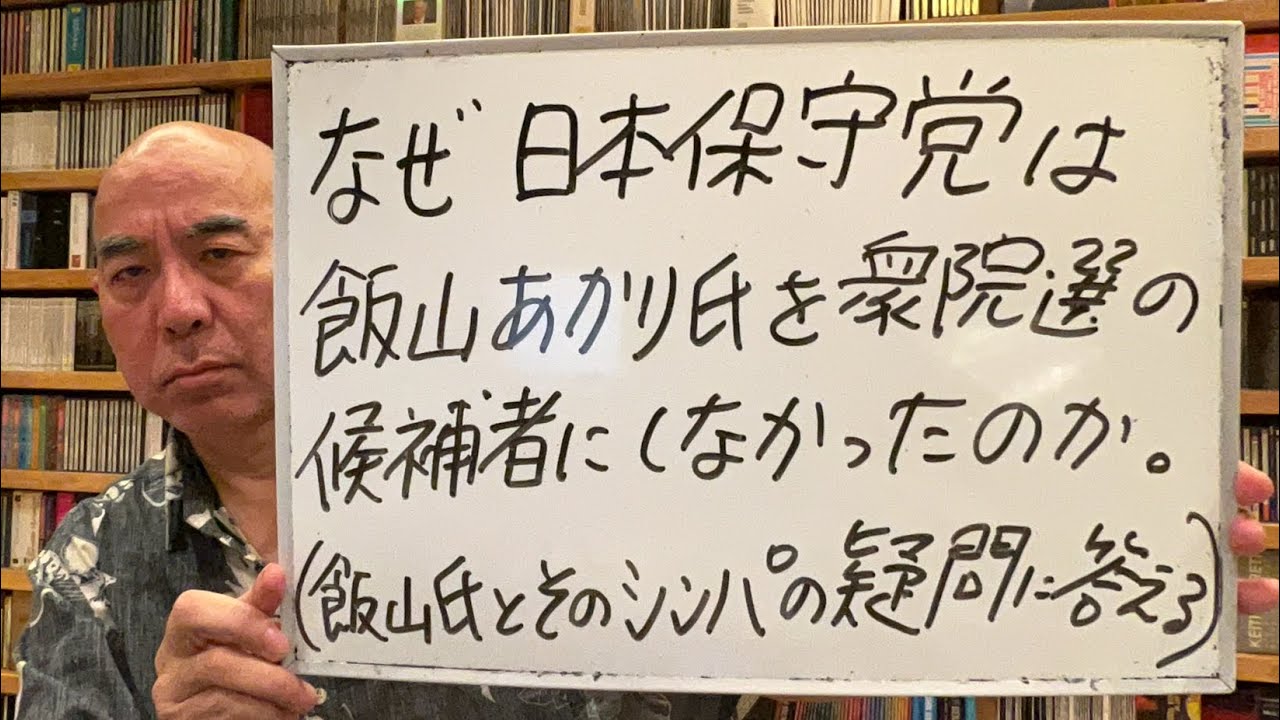 なぜ日本保守党は
飯山あかり氏を衆院選の
候補者にしなかったのか。
(飯山氏とそのシンパの疑問に答える)